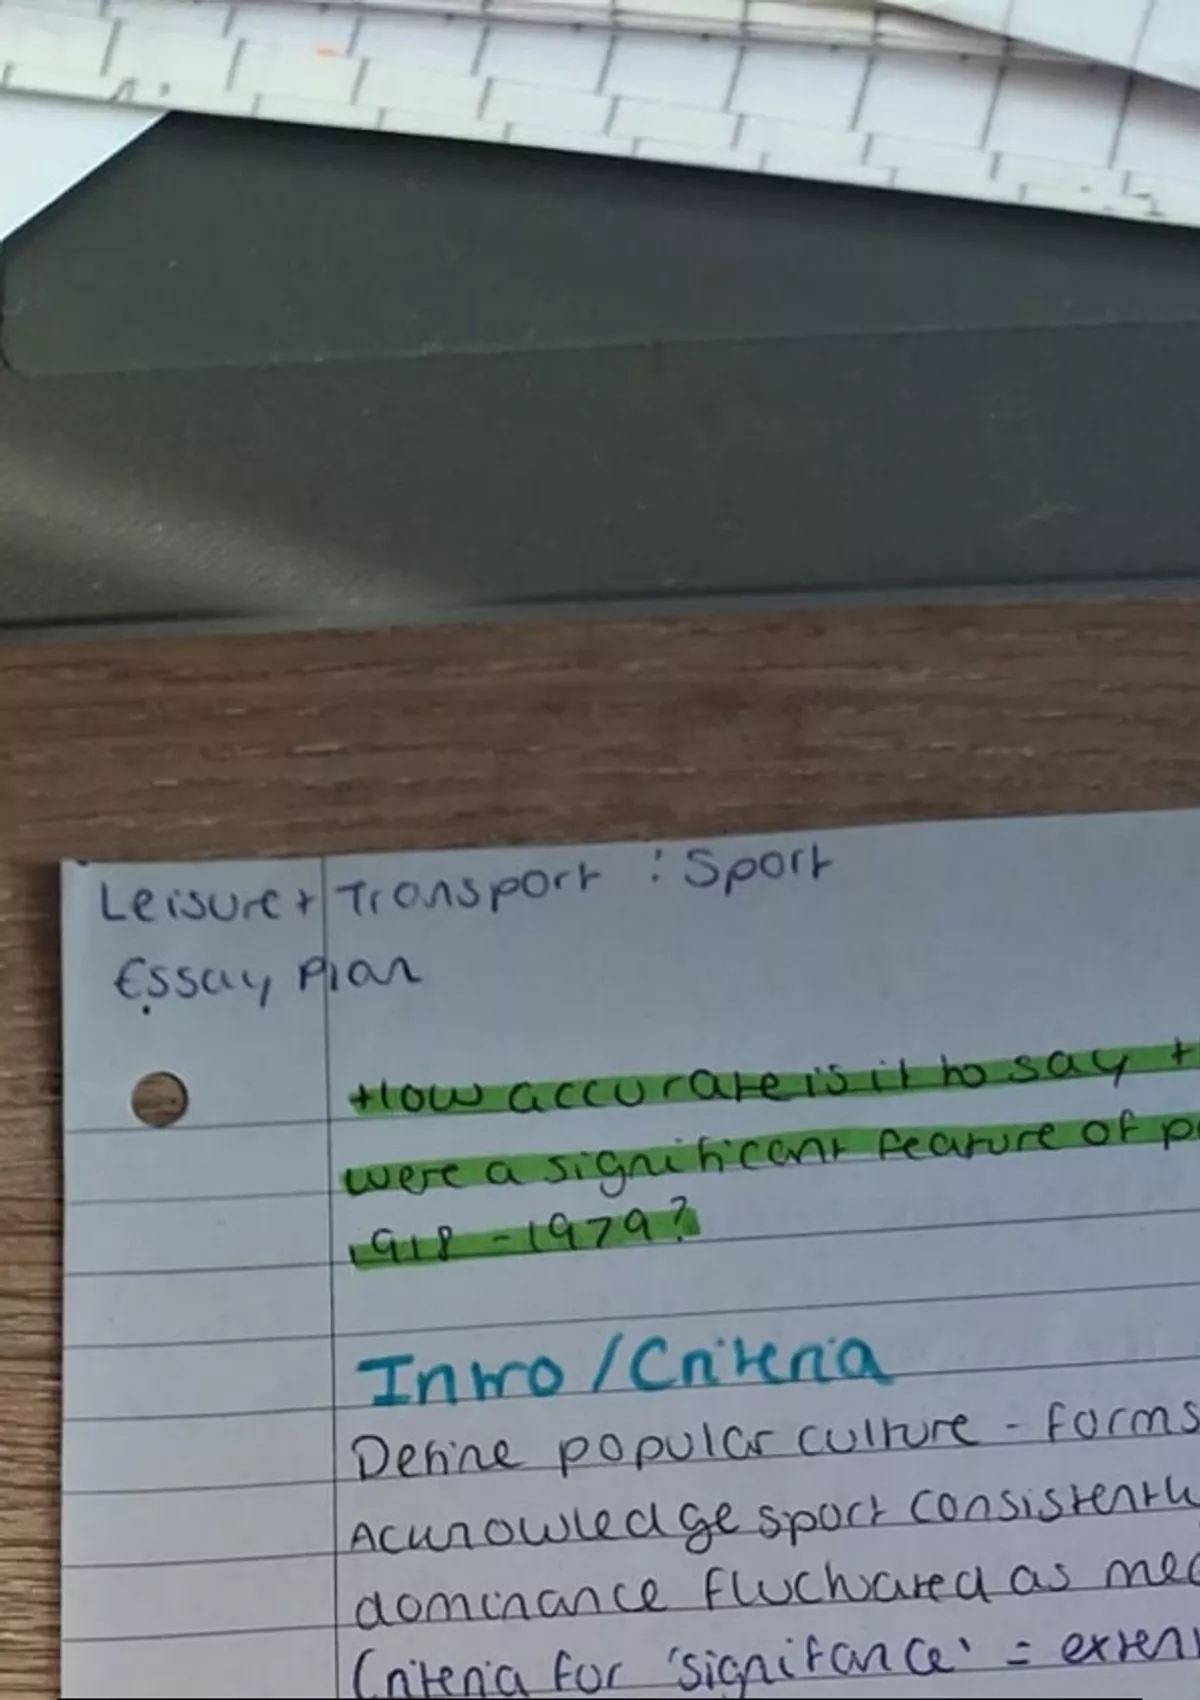 Leisure + Transport : Sport
Essay Plan
How accurate is it to say
were a significant feature of
1918 - 1979?
Intro / Criteria
Define popular culture - forms
Acknowledge sport consistently
dominance fluctuated as
Criteria for 'signifance' =